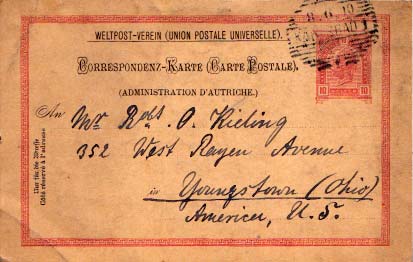 WELTPOST-VEREIN (UNION POSTALE UNIVERSELLE).
CORRESPONDENZ-KARTE (CARTE POSTALE).
(ADMINISTRATION D'AUTRICHE.)
An Mr Robt. O. Kieling
352 West Rayen Avenue
in Youngstown (Ohio)
America, U. S.
Nur für die Adresse
Côté réservé à l'adresse
10 10